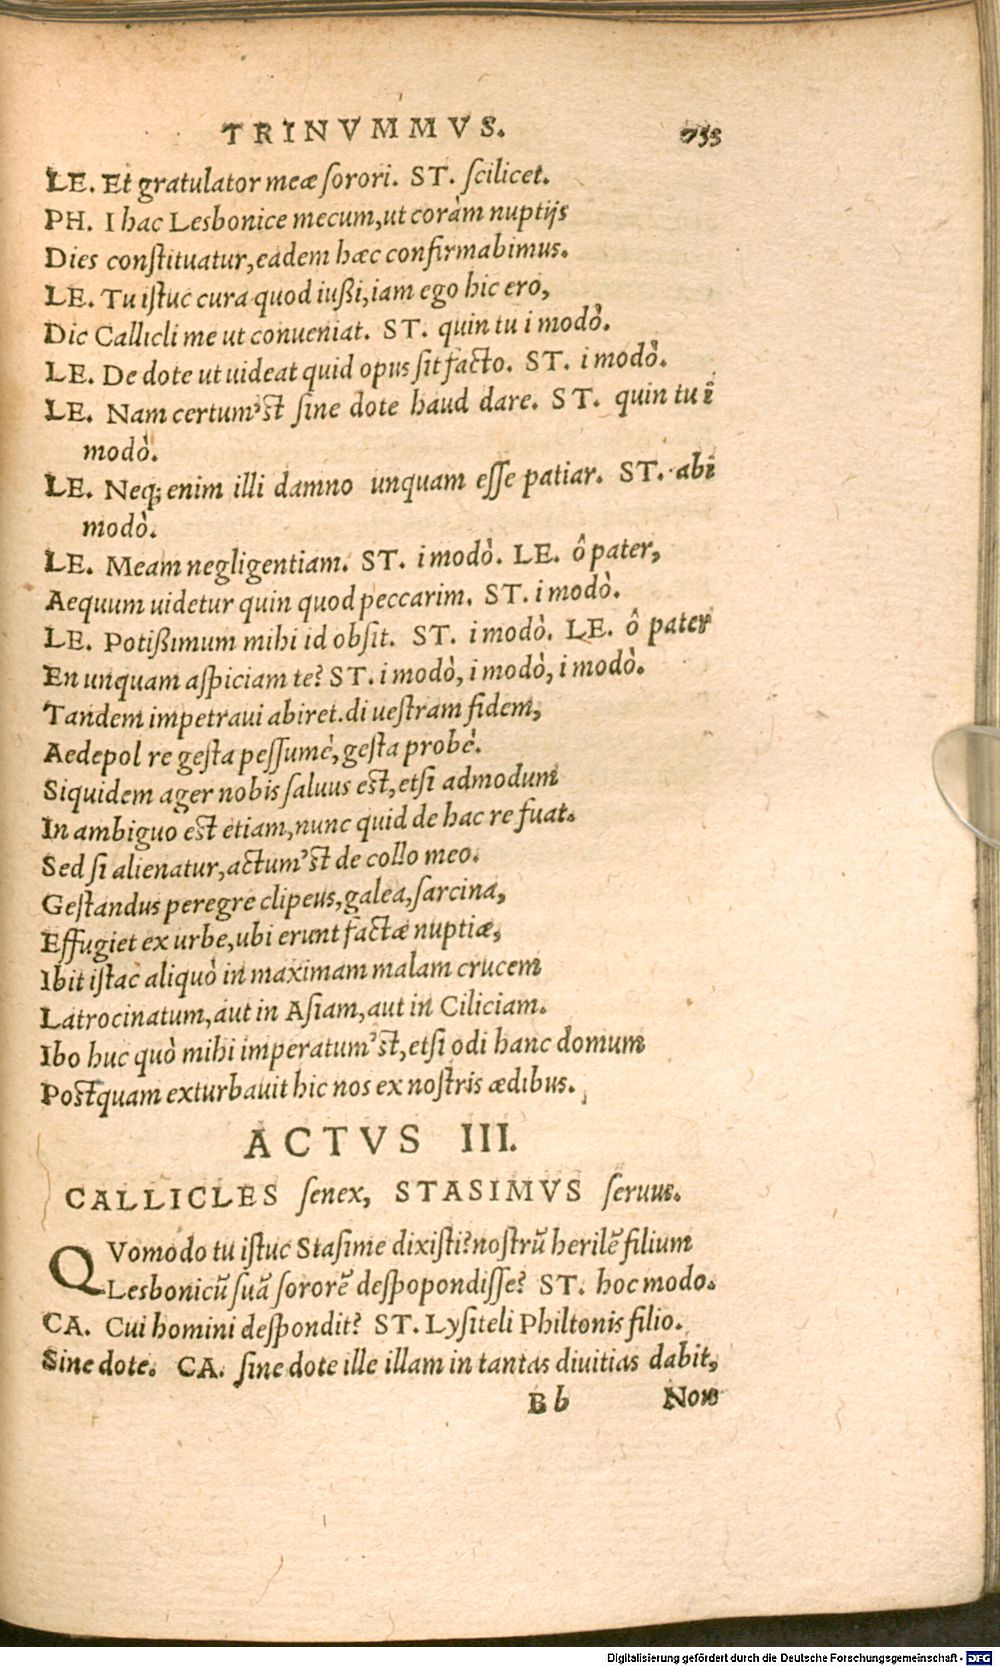 TRINVMMVS. 753
LE. Et gratulator meæ sorori. ST. scilicet.
PH. I hac Lesbonice mecum, ut coràm nuptijs
Dies constituatur, eadem hæc confirmabimus.
LE. Tu istuc cura quod iußi, iam ego hic ero,
Dic Callicli me ut conueniat. ST. quin tu i modò.
LE. De dote ut uideat quid opus sit facto. ST. i modò.
LE. Nam certum'st sine dote haud dare. ST. quin tu i
modò.
LE. Neq; enim illi damno unquam esse patiar. ST. abi
modò.
LE. Meam negligentiam. ST. i modò. LE. ô pater,
Aequum uidetur quin quod peccarim. ST. i modò.
LE. Potißimum mihi id obsit. ST. i modò. LE. ô pater
En unquam aspiciam te? ST. i modò, i modò, i modò.
Tandem impetraui abiret. di uestram fidem,
Aedepol re gesta pessumè, gesta probè.
Siquidem ager nobis saluus est, etsi admodum
In ambiguo est etiam, nunc quid de hac re fuat.
Sed si alienatur, actum'st de collo meo.
Gestandus peregre clipeus, galea, sarcina,
Effugiet ex urbe, ubi erunt factæ nuptiæ,
Ibit istac aliquò in maximam malam crucem
Latrocinatum, aut in Asiam, aut in Ciliciam.
Ibo huc quò mihi imperatum'st, etsi odi hanc domum
Postquam exturbauit hic nos ex nostris ædibus.
ACTVS III.
CALLICLES senex, STASIMVS seruus.
QVomodo tu istuc Stasime dixisti? nostrũ herilẽ filium
Lesbonicũ suã sororẽ despopondisse? ST. hoc modo.
CA. Cui homini despondit? ST. Lysiteli Philtonis filio.
Sine dote. CA. sine dote ille illam in tantas diuitias dabit,
Bb Non
Digitalisierung gefördert durch die Deutsche Forschungsgemeinschaft - DFG